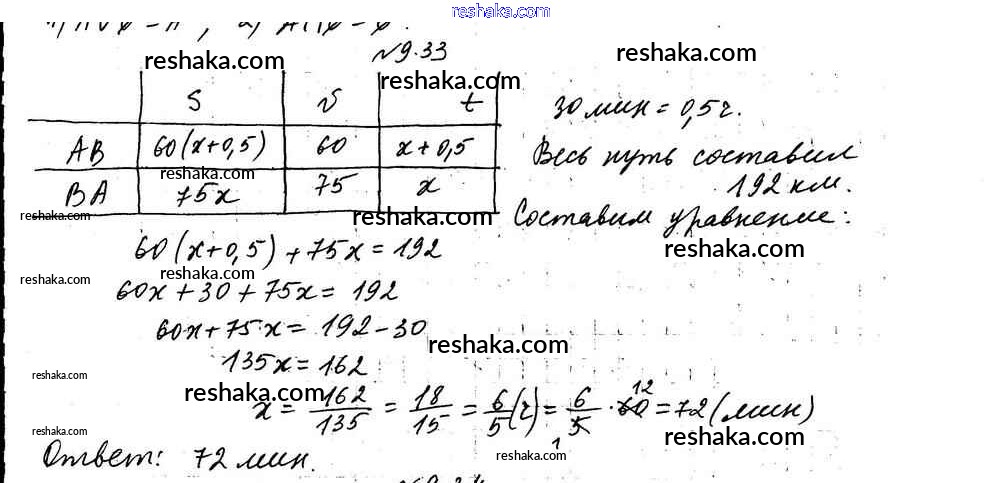 reshaka.com
1) A∪∅ = A, 2) A∩∅ = ∅.
№9.33
reshaka.com
reshaka.com
reshaka.com
S v t
30 мин = 0,5 ч.
AB 60(x+0,5) 60 x+0,5
Весь путь составил
reshaka.com
BA 75x 75 x
192 км.
reshaka.com
reshaka.com
Составим уравнение:
60(x+0,5) + 75x = 192
reshaka.com
reshaka.com
reshaka.com
60x + 30 + 75x = 192
60x + 75x = 192 - 30
reshaka.com
135x = 162
reshaka.com
reshaka.com
x = 162/135 = 18/15 = 6/5 (ч) = 6/5 · 60 = 72 (мин)
12
1
reshaka.com
reshaka.com
Ответ: 72 мин.
reshaka.com